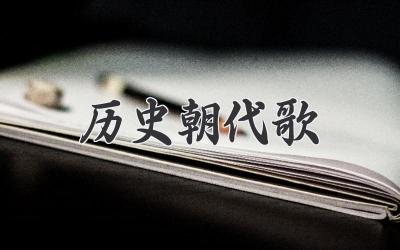 历史朝代歌